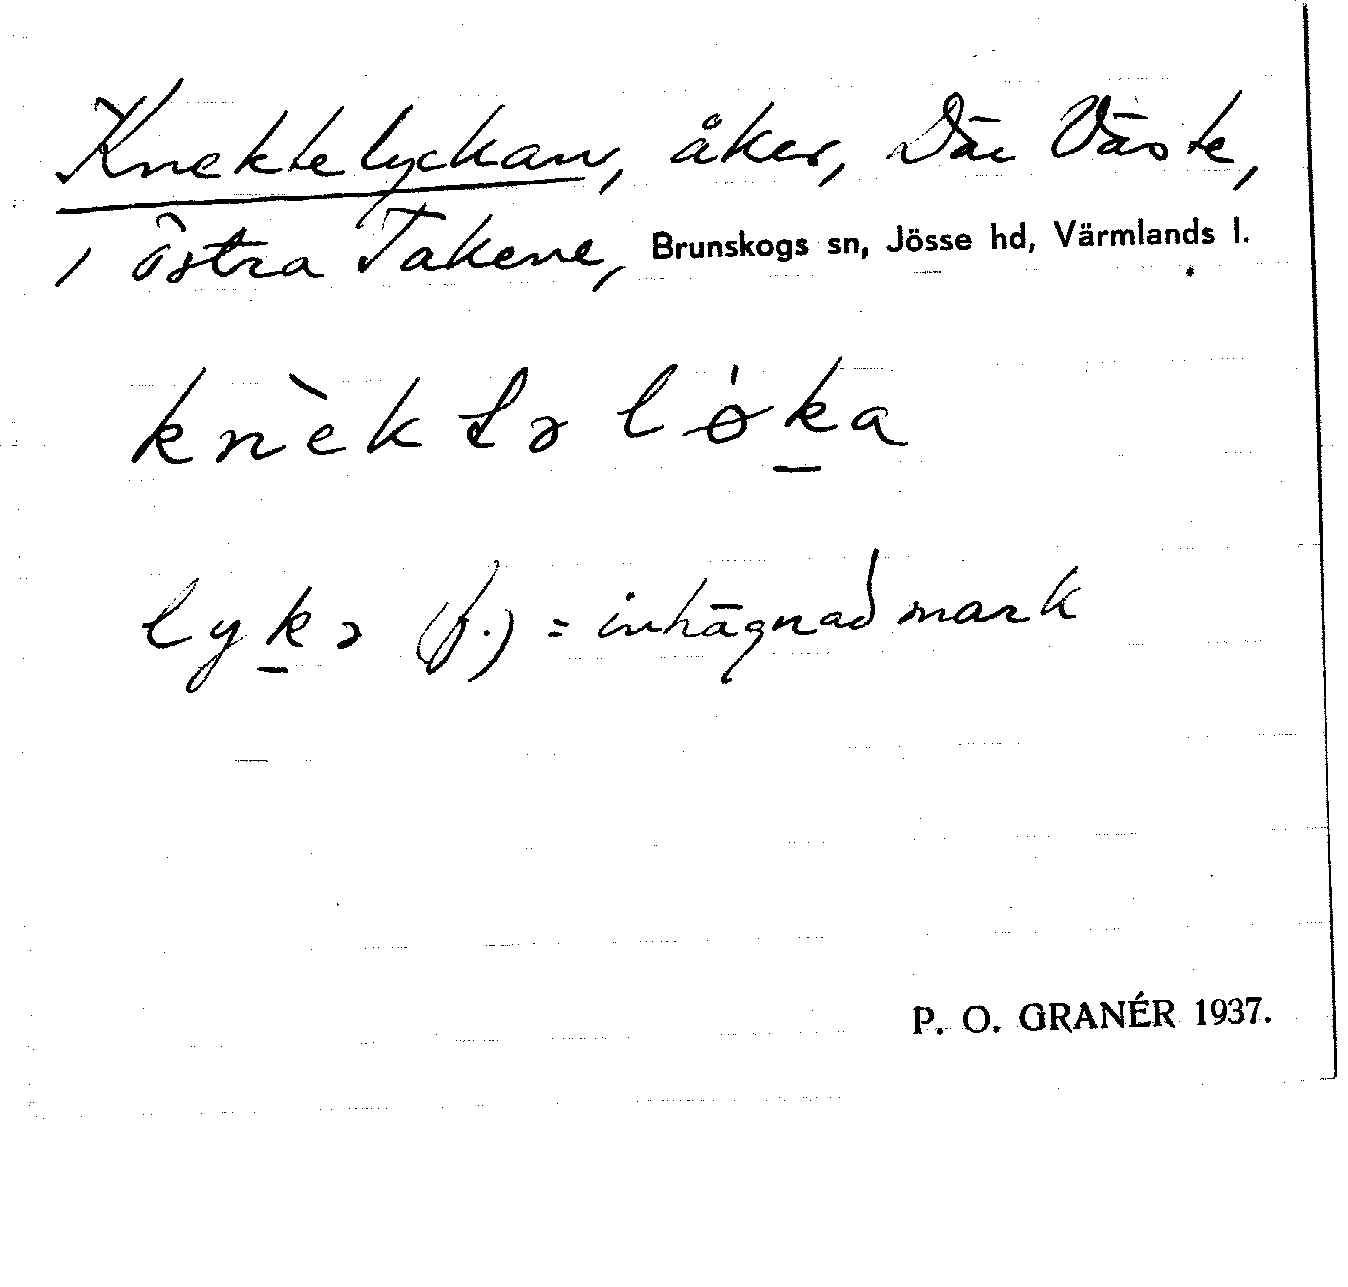 Knektelyckan, åker, Där Väste,
i östra Takene, Brunskogs sn, Jösse hd, Värmlands l.
knὲktə lø̍k̠a
lyk̠ə (f.) = inhägnad mark
P. O. GRANÉR 1937.